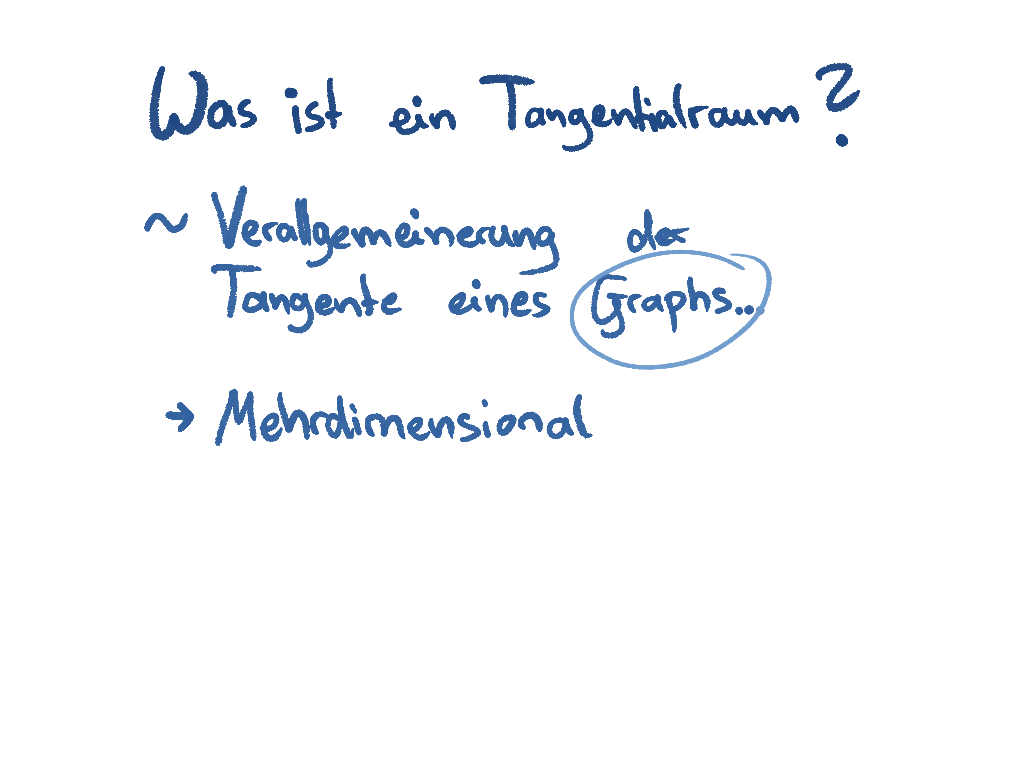 Was ist ein Tangentialraum?
~ Verallgemeinerung der
Tangente eines Graphs...
→ Mehrdimensional